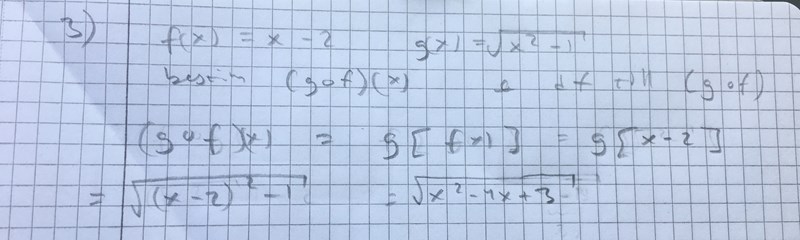 3) f(x) = x - 2 g(x) = √(x² - 1)
bestäm (g∘f)(x) & df till (g∘f)
(g∘f)(x) = g[f(x)] = g[x - 2]
= √((x - 2)² - 1) = √(x² - 4x + 3)